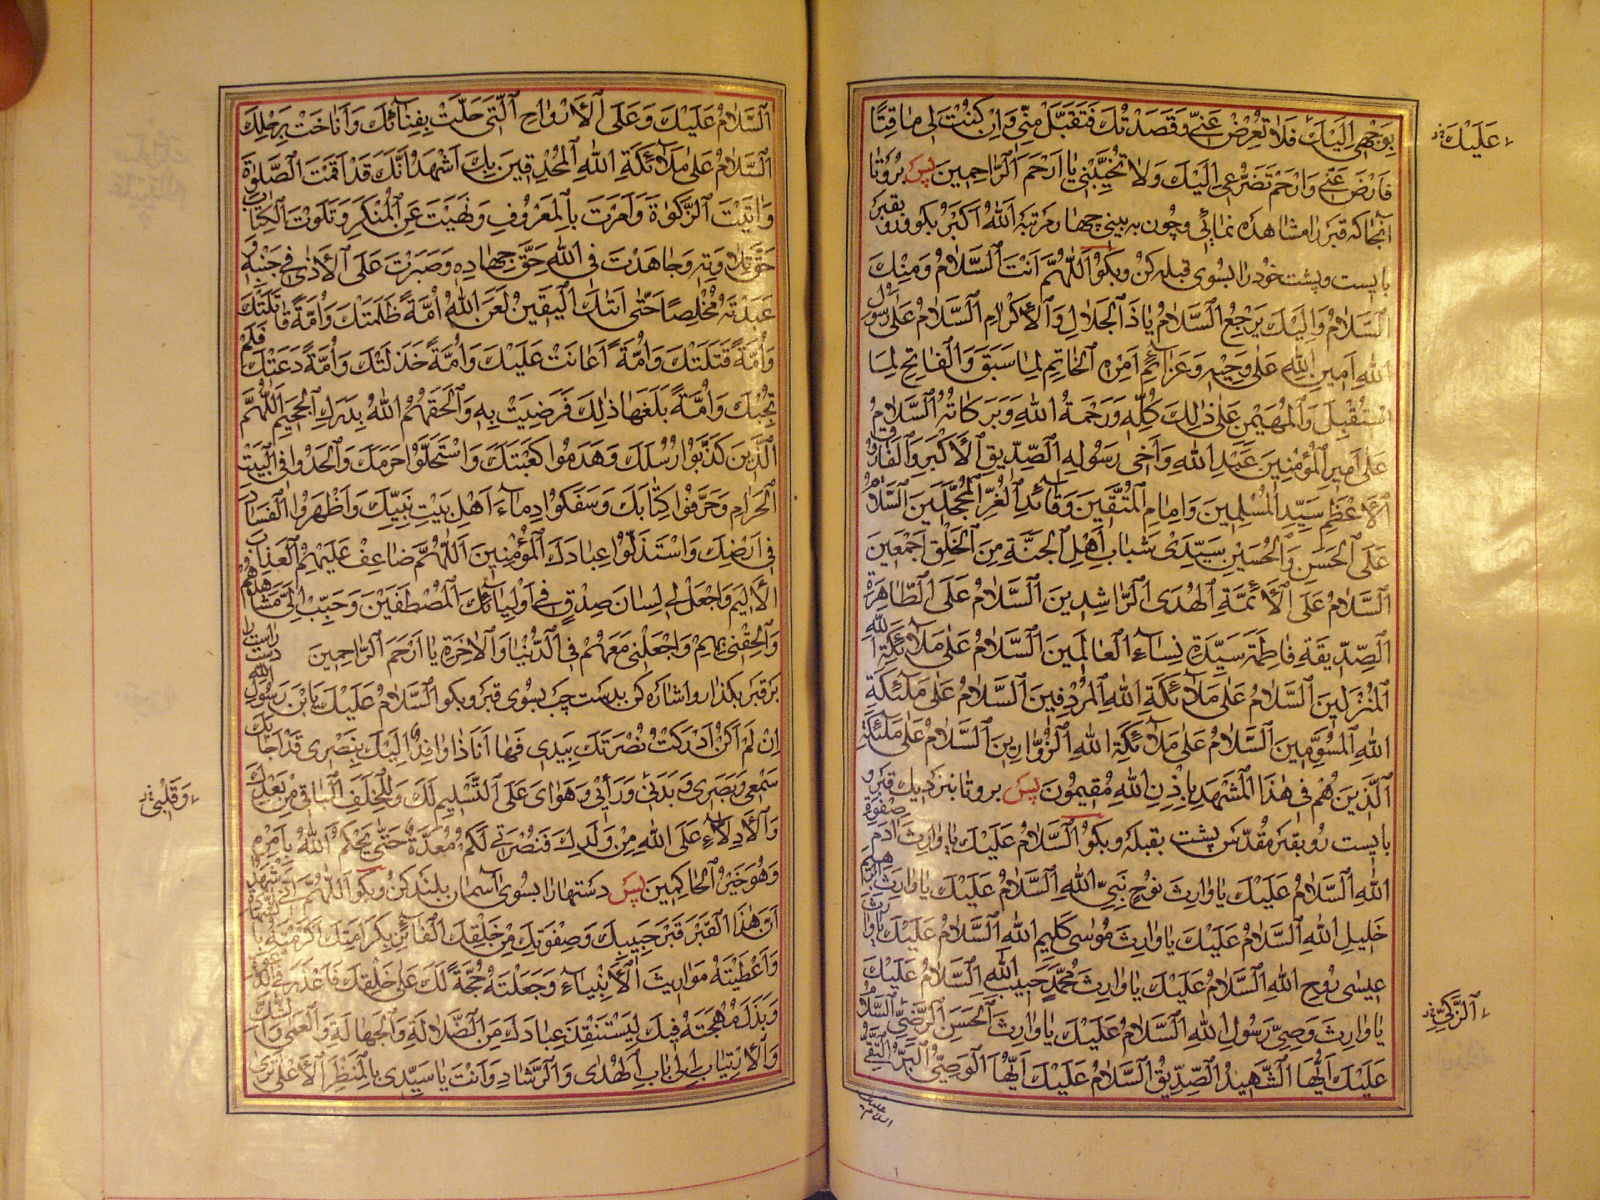 بِوَجْهِي اِلَيْكَ فَلا تُعْرِضْ عَنّي وَقَصَدْتُكَ فَتَقَبَّلْ مِنّي وَاِنْ كُنْتَ لي ماقِتًا
عَلَيْكَ
فَارْضَ عَنّي وَارْحَمْ تَضَرُّعي اِلَيْكَ وَلا تُخَيِّبْني يا اَرْحَمَ الرّاحِمينَ پس بروتا
آنجا كه قبر را مشاهده نمائى وچون به بينى چهار مرتبه اَللهُ اَكْبَرُ بكو ورو بقبر
بايست وپشت خود را بسوى قبله كن وبكو اَللّهُمَّ اَنْتَ السَّلامُ وَمِنْكَ
السَّلامُ وَاِلَيْكَ يَرْجِعُ السَّلامُ يا ذَا الْجَلالِ وَالْاِكْرامِ السَّلامُ عَلى رَسُولِ
اللهِ اَمينِ اللهِ عَلى وَحْيِهِ وَعَزائِمِ اَمْرِهِ الْخاتِمِ لِما سَبَقَ وَالْفاتِحِ لِمَا
اسْتُقْبِلَ وَالْمُهَيْمِنِ عَلى ذلِكَ كُلِّهِ وَرَحْمَةُ اللهِ وَبَرَكاتُهُ السَّلامُ
عَلى اَميرِ الْمُؤْمِنينَ عَبْدِ اللهِ وَاَخي رَسُولِهِ الصِّدّيقِ الْاَكْبَرِ وَالْفارُوقِ
الْاَعْظَمِ سَيِّدِ الْمُسْلِمينَ وَاِمامِ الْمُتَّقينَ وَقائِدِ الْغُرِّ الْمُحَجَّلينَ السَّلامُ
عَلَى الْحَسَنِ وَالْحُسَيْنِ سَيِّدَيْ شَبابِ اَهْلِ الْجَنَّةِ مِنَ الْخَلْقِ اَجْمَعينَ
السَّلامُ عَلَى الْاَئِمَّةِ الْهُدَى الرّاشِدينَ السَّلامُ عَلَى الطّاهِرَةِ
الصِّدّيقَةِ فاطِمَةَ سَيِّدَةِ نِساءِ الْعالَمينَ السَّلامُ عَلى مَلائِكَةِ اللهِ
الْمُنْزَلينَ السَّلامُ عَلى مَلائِكَةِ اللهِ الْمُرْدِفينَ السَّلامُ عَلى مَلئِكَةِ
اللهِ الْمُسَوِّمينَ السَّلامُ عَلى مَلائِكَةِ اللهِ الزَّوّارينَ السَّلامُ عَلى مَلئِكَتِهِ
الَّذينَ هُمْ في هذَا الْمَشْهَدِ بِاِذْنِ اللهِ مُقيمُونَ پس بروتا بنزديك قبر و
بايست رو بقبر مقدّس پشت بقبله وبكو اَلسَّلامُ عَلَيْكَ يا وارِثَ آدَمَ صَفْوَةِ
اللهِ السَّلامُ عَلَيْكَ يا وارِثَ نُوحٍ نَبِيِّ اللهِ السَّلامُ عَلَيْكَ يا وارِثَ اِبْرهيمَ
خَليلِ اللهِ السَّلامُ عَلَيْكَ يا وارِثَ مُوسى كَليمِ اللهِ السَّلامُ عَلَيْكَ يا وارِثَ
عيسى رُوحِ اللهِ السَّلامُ عَلَيْكَ يا وارِثَ مُحَمَّدٍ حَبيبِ اللهِ السَّلامُ عَلَيْكَ
يا وارِثَ وَصِيِّ رَسُولِ اللهِ السَّلامُ عَلَيْكَ يا وارِثَ الْحَسَنِ الرَّضِيِّ السَّلامُ
الزَّكِيِّ
عَلَيْكَ اَيُّهَا الشَّهيدُ الصِّدّيقُ السَّلامُ عَلَيْكَ اَيُّهَا الْوَصِيُّ الْبَرُّ التَّقِيُّ
السلام عليك
السَّلامُ عَلَيْكَ وَعَلَى الْاَرْواحِ الَّتي حَلَّتْ بِفِنائِكَ وَاَناخَتْ بِرَحْلِكَ
السَّلامُ عَلى مَلائِكَةِ اللهِ الْمُحْدِقينَ بِكَ اَشْهَدُ اَنَّكَ قَدْ اَقَمْتَ الصَّلوةَ
وَاتَيْتَ الزَّكوةَ وَاَمَرْتَ بِالْمَعْرُوفِ وَنَهَيْتَ عَنِ الْمُنْكَرِ وَتَلَوْتَ الْكِتابَ
حَقَّ تِلاوَتِهِ وَجاهَدْتَ فِي اللهِ حَقَّ جِهادِهِ وَصَبَرْتَ عَلَى الْاَذى في جَنْبِهِ وَ
عَبَدْتَهُ مُخْلِصًا حَتّى اَتيكَ الْيَقينُ لَعَنَ اللهُ اُمَّةً ظَلَمَتْكَ وَاُمَّةً قاتَلَتْكَ
وَاُمَّةً قَتَلَتْكَ وَاُمَّةً اَعانَتْ عَلَيْكَ وَاُمَّةً خَذَلَتْكَ وَاُمَّةً دَعَتْكَ فَلَمْ
تُجِبْكَ وَاُمَّةً بَلَغَها ذلِكَ فَرَضِيَتْ بِهِ وَاَلْحَقَهُمُ اللهُ بِدَرَكِ الْجَحيمِ اَللّهُمَّ
الَّذينَ كَذَّبُوا رُسُلَكَ وَهَدَمُوا كَعْبَتَكَ وَاسْتَحَلُّوا حَرَمَكَ وَاَلْحَدُوا فِي الْبَيْتِ
الْحَرامِ وَحَرَّفُوا كِتابَكَ وَسَفَكُوا دِماءَ اَهْلِ بَيْتِ نَبِيِّكَ وَاَظْهَرُوا الْفَسادَ
في اَرْضِكَ وَاسْتَذَلُّوا عِبادَكَ الْمُؤْمِنينَ اَللّهُمَّ ضاعِفْ عَلَيْهِمُ الْعَذابَ
الْاَليمَ وَاجْعَلْ لي لِسانَ صِدْقٍ في اَوْلِيائِكَ الْمُصْطَفَيْنَ وَحَبِّبْ اِلَيَّ مَشاهِدَهُمْ
وَاَلْحِقْني بِهِمْ وَاجْعَلْني مَعَهُمْ فِي الدُّنْيا وَالْاخِرَةِ يا اَرْحَمَ الرّاحِمينَ دست راست
بر قبر بكذار واشاره كن بدست چپ بسوى قبر وبكو اَلسَّلامُ عَلَيْكَ يَا بْنَ رَسُولِ اللهِ
اِنْ لَمْ اَكُنْ اَدْرَكْتُ نُصْرَتَكَ بِيَدي فَها اَنَا ذا وافِدٌ اِلَيْكَ بِنَصْري قَدْ اَجابَكَ
سَمْعي وَبَصَري وَبَدَني وَرَأْيي وَهَوايَ عَلَى التَّسْليمِ لَكَ وَلِلْخَلَفِ الْباقي مِنْ بَعْدِكَ
وَقَلْبي
وَالْاَدِلّاءِ عَلَى اللهِ مِنْ وَلَدِكَ فَنُصْرَتي لَكُمْ مُعَدَّةٌ حَتّى يَحْكُمَ اللهُ بِاَمْرِهِ
وَهُوَ خَيْرُ الْحاكِمينَ پس دستها را بسوى آسمان بلند كن وبكو اَللّهُمَّ اِنّي اَشْهَدُ
اَنَّ هذَا الْقَبْرَ قَبْرُ حَبيبِكَ وَصَفْوَتِكَ مِنْ خَلْقِكَ الْفائِزِ بِكَرامَتِكَ اَكْرَمْتَهُ
وَاَعْطَيْتَهُ مَواريثَ الْاَنْبِياءِ وَجَعَلْتَهُ حُجَّةً لَكَ عَلى خَلْقِكَ فَاَعْذَرَ فِي
وَبَذَلَ مُهْجَتَهُ فيكَ لِيَسْتَنْقِذَ عِبادَكَ مِنَ الضَّلالَةِ وَالْجَهالَةِ وَالْعَمى وَ
وَالْاِرْتِيابِ اِلى بابِ الْهُدى وَالرَّشادِ وَاَنْتَ يا سَيِّدي بِالْمَنْظَرِ الْاَعْلى تَرى